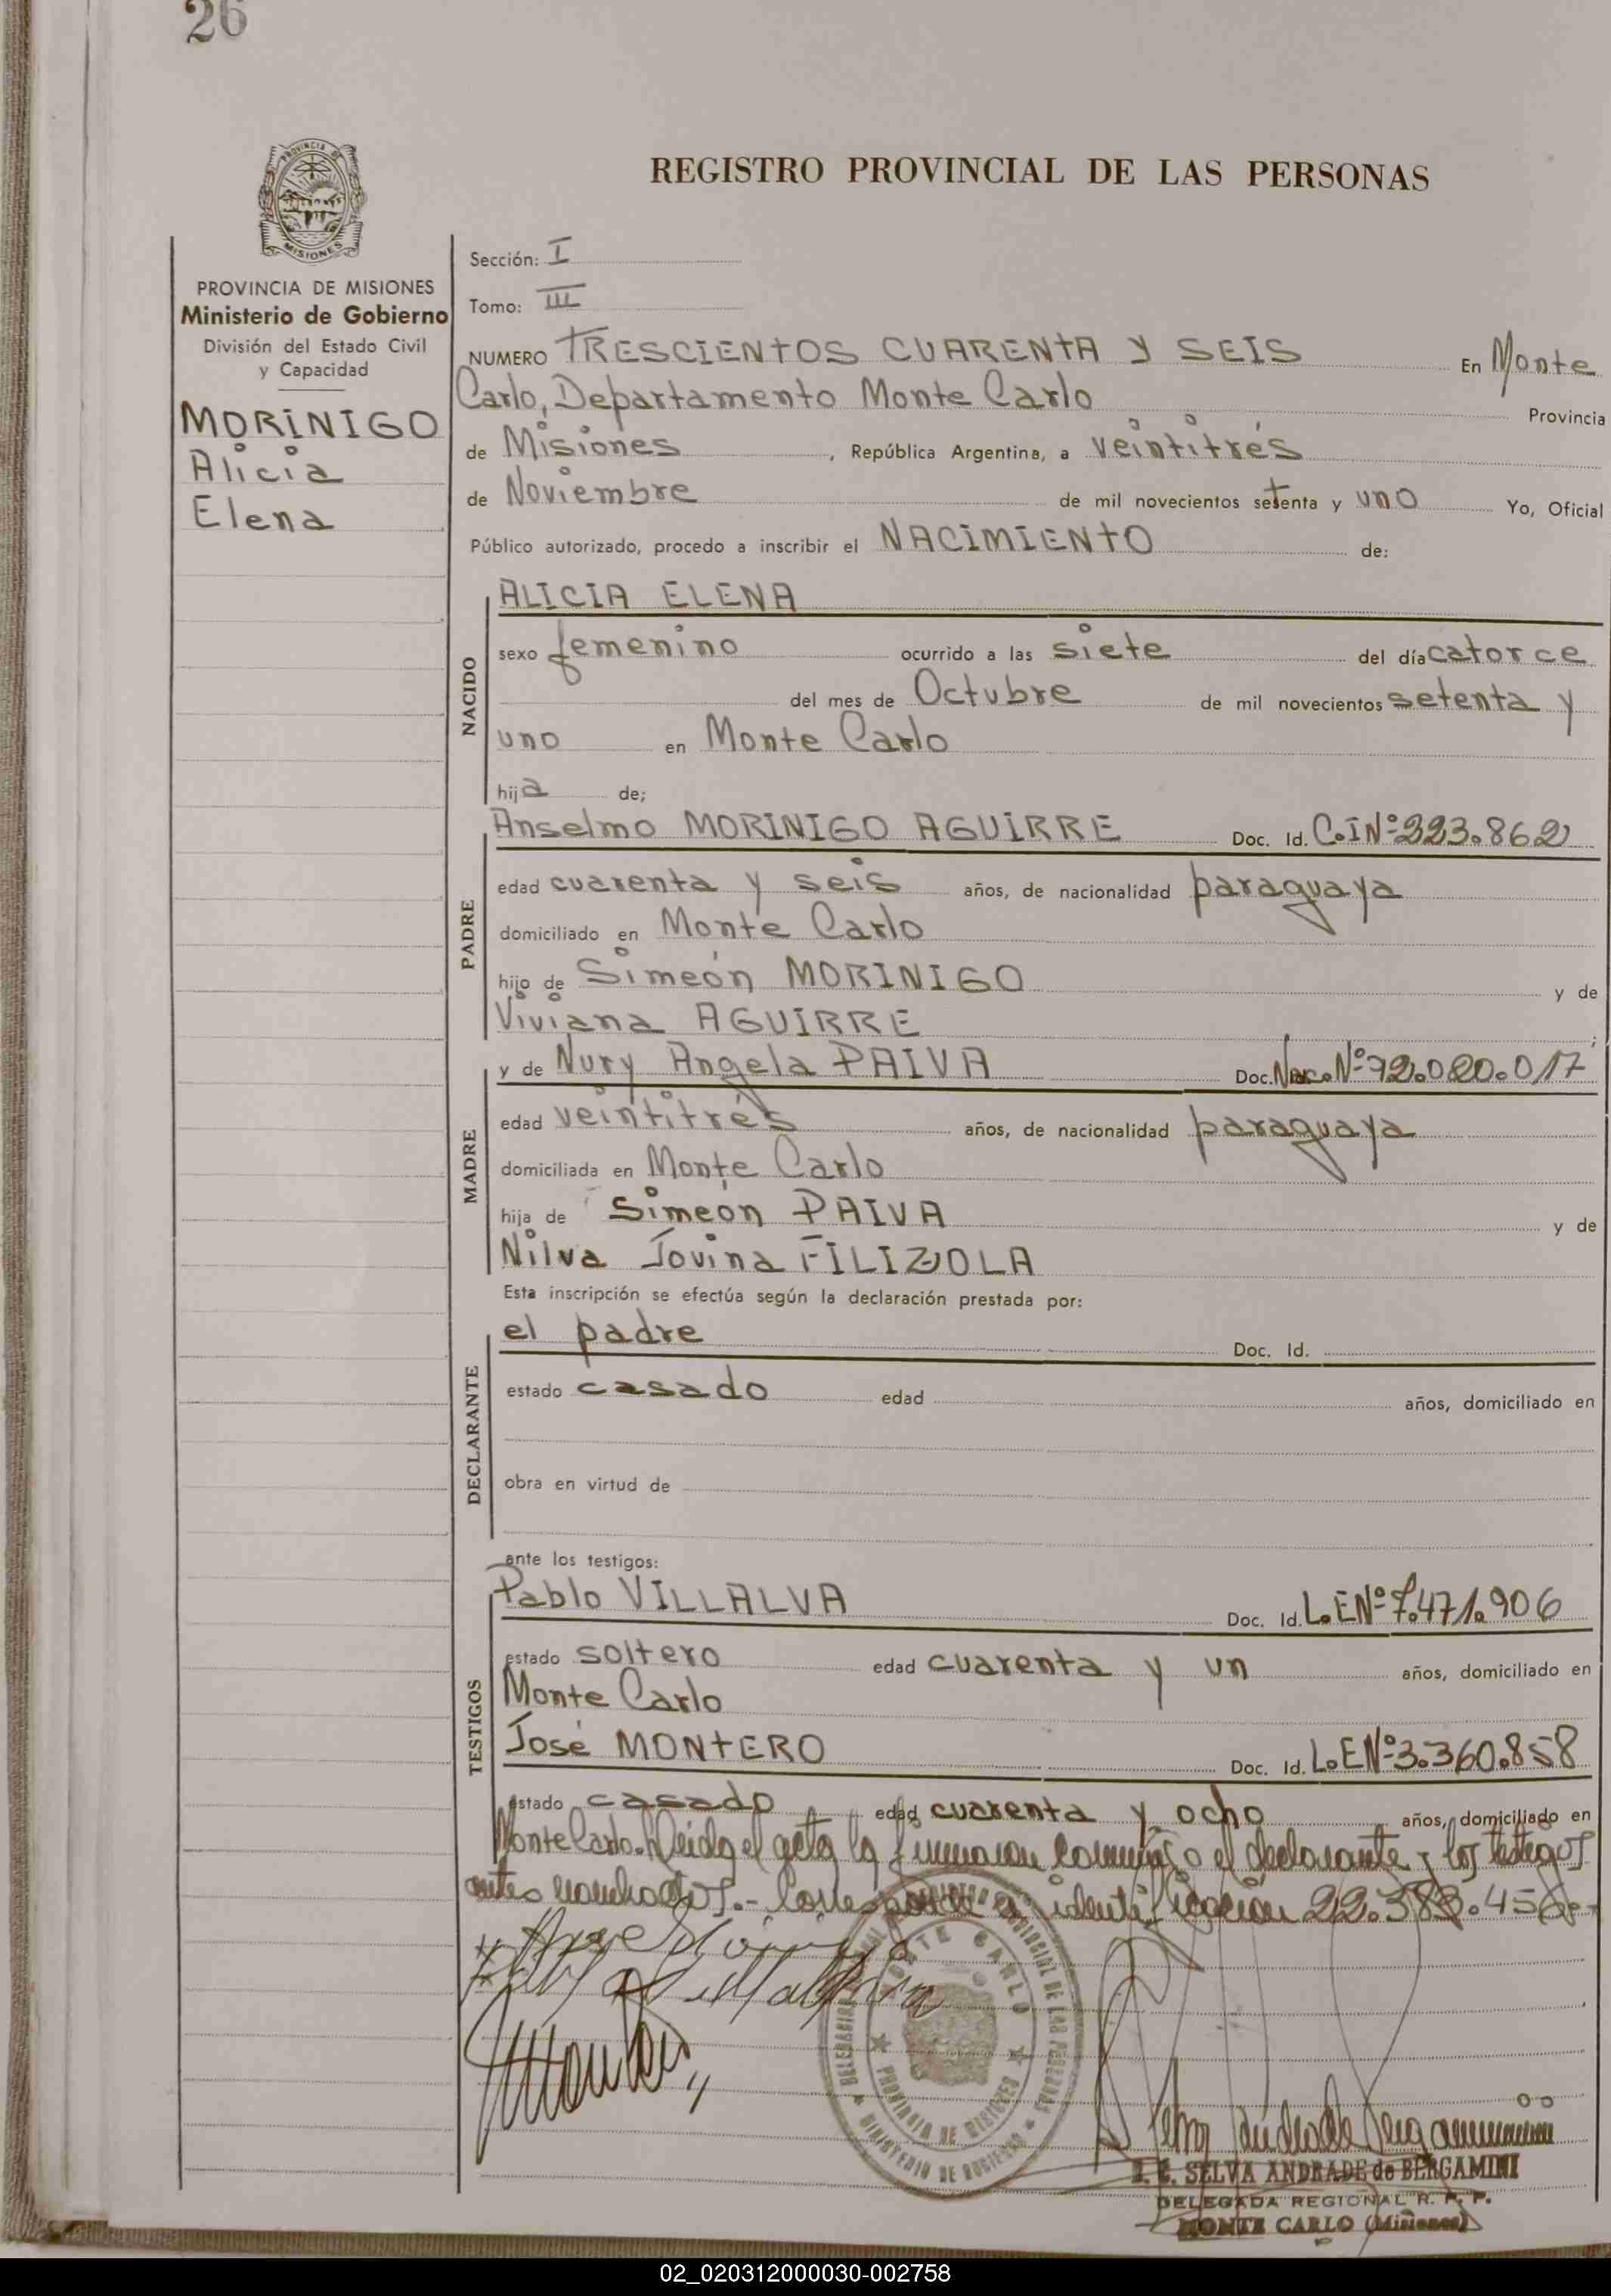 26
PROVINCIA DE
MISIONES
REGISTRO PROVINCIAL DE LAS PERSONAS
PROVINCIA DE MISIONES
Ministerio de Gobierno
División del Estado Civil
y Capacidad
MORINIGO
Alicia
Elena
Sección: I
Tomo: III
NUMERO TRESCIENTOS CUARENTA Y SEIS En Monte
Carlo, Departamento Monte Carlo Provincia
de Misiones, República Argentina, a veintitrés
de Noviembre de mil novecientos setenta y uno Yo, Oficial
Público autorizado, procedo a inscribir el NACIMIENTO de:
NACIDO
ALICIA ELENA
sexo femenino ocurrido a las siete del día catorce
del mes de Octubre de mil novecientos setenta y
uno en Monte Carlo
hija de;
PADRE
Anselmo MORINIGO AGUIRRE Doc. Id. C.I Nº 223.862
edad cuarenta y seis años, de nacionalidad paraguaya
domiciliado en Monte Carlo
hijo de Simeón MORINIGO y de
Viviana AGUIRRE ;
MADRE
y de Nury Angela PAIVA Doc. Nac. Nº 92.020.017
edad veintitrés años, de nacionalidad paraguaya
domiciliada en Monte Carlo
hija de Simeón PAIVA y de
Nilva Jovina FILIZZOLA
Esta inscripción se efectúa según la declaración prestada por:
DECLARANTE
el padre Doc. Id.
estado casado edad años, domiciliado en
obra en virtud de
ante los testigos:
TESTIGOS
Pablo VILLALVA Doc. Id. L.E Nº 7.471.906
estado soltero edad cuarenta y un años, domiciliado en
Monte Carlo
José MONTERO Doc. Id. L.E Nº 3.360.858
estado casado edad cuarenta y ocho años, domiciliado en
Monte Carlo. Leída el acta la firmaron conmigo el declarante y los testigos
antes nombrados.- Corresponde a identificación 22.383.456.-
MONTE CARLO
PROVINCIA DE MISIONES
MINISTERIO DE GOBIERNO
SELVA ANDRADE de BERGAMINI
DELEGADA REGIONAL R. P. P.
MONTE CARLO (Misiones)
02_020312000030-002758